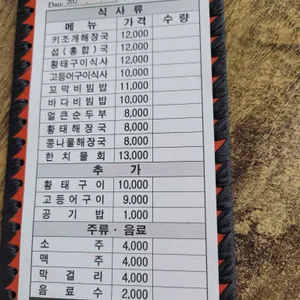 Date. 202
식 사 류
메 뉴 가 격 수 량
키조개해장국 12,000
섭(홍합)국 12,000
황태구이식사 12,000
고등어구이식사 10,000
꼬막비빔밥 11,000
바다비빔밥 10,000
얼큰순두부 8,000
황태해장국 8,000
콩나물해장국 8,000
한치물회 13,000
추 가
황태구이 10,000
고등어구이 9,000
공기밥 1,000
주류·음료
소주 4,000
맥주 4,000
막걸리 4,000
음료수 2,000